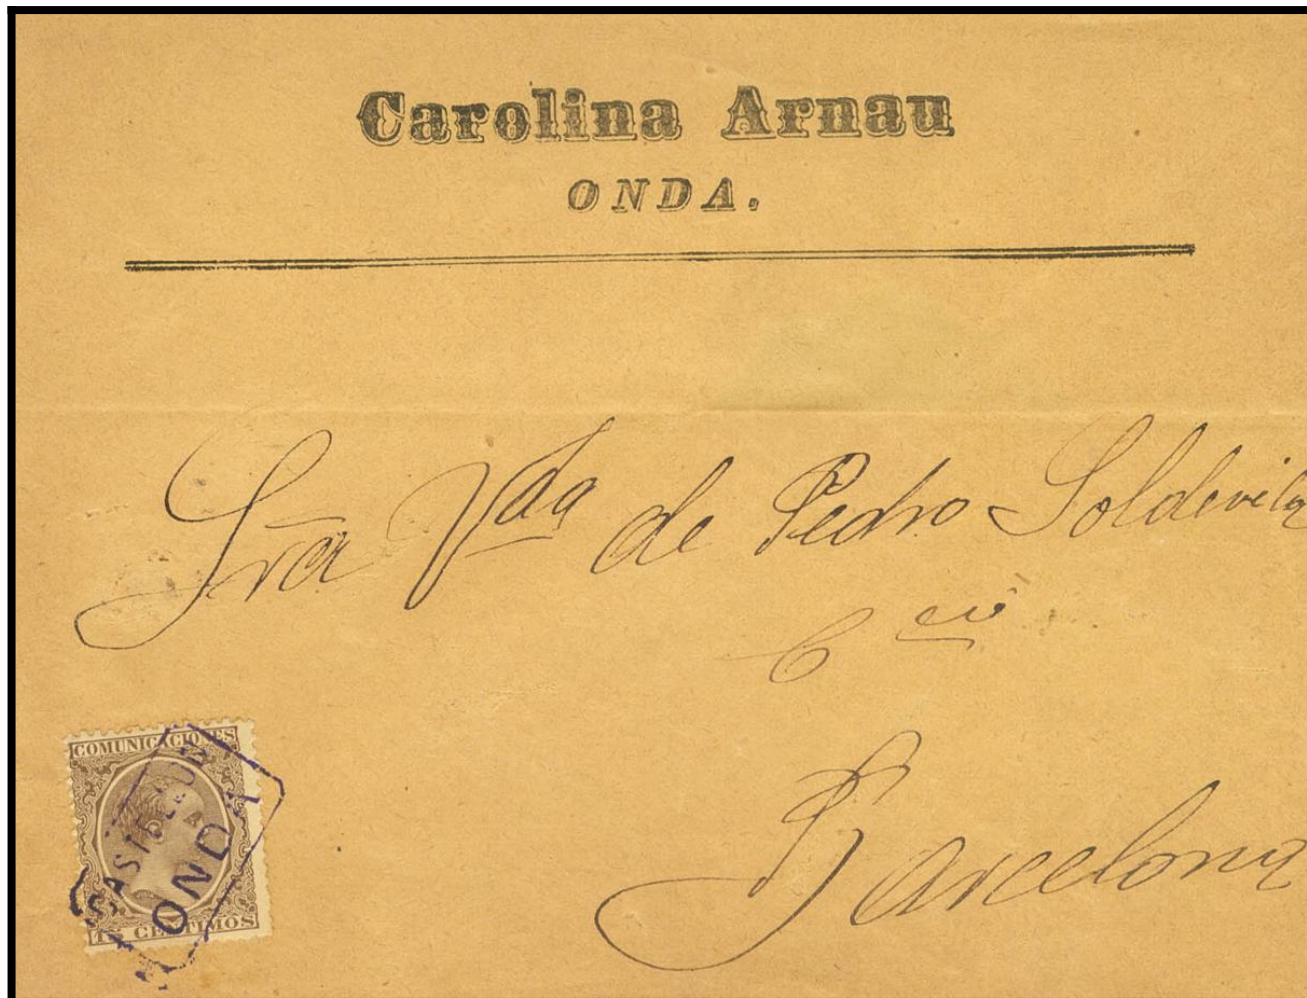 Carolina Arnau
ONDA.
Sra Vda de Pedro Soldevila
Barcelona
COMUNICACIONES
ONDA
CENTIMOS